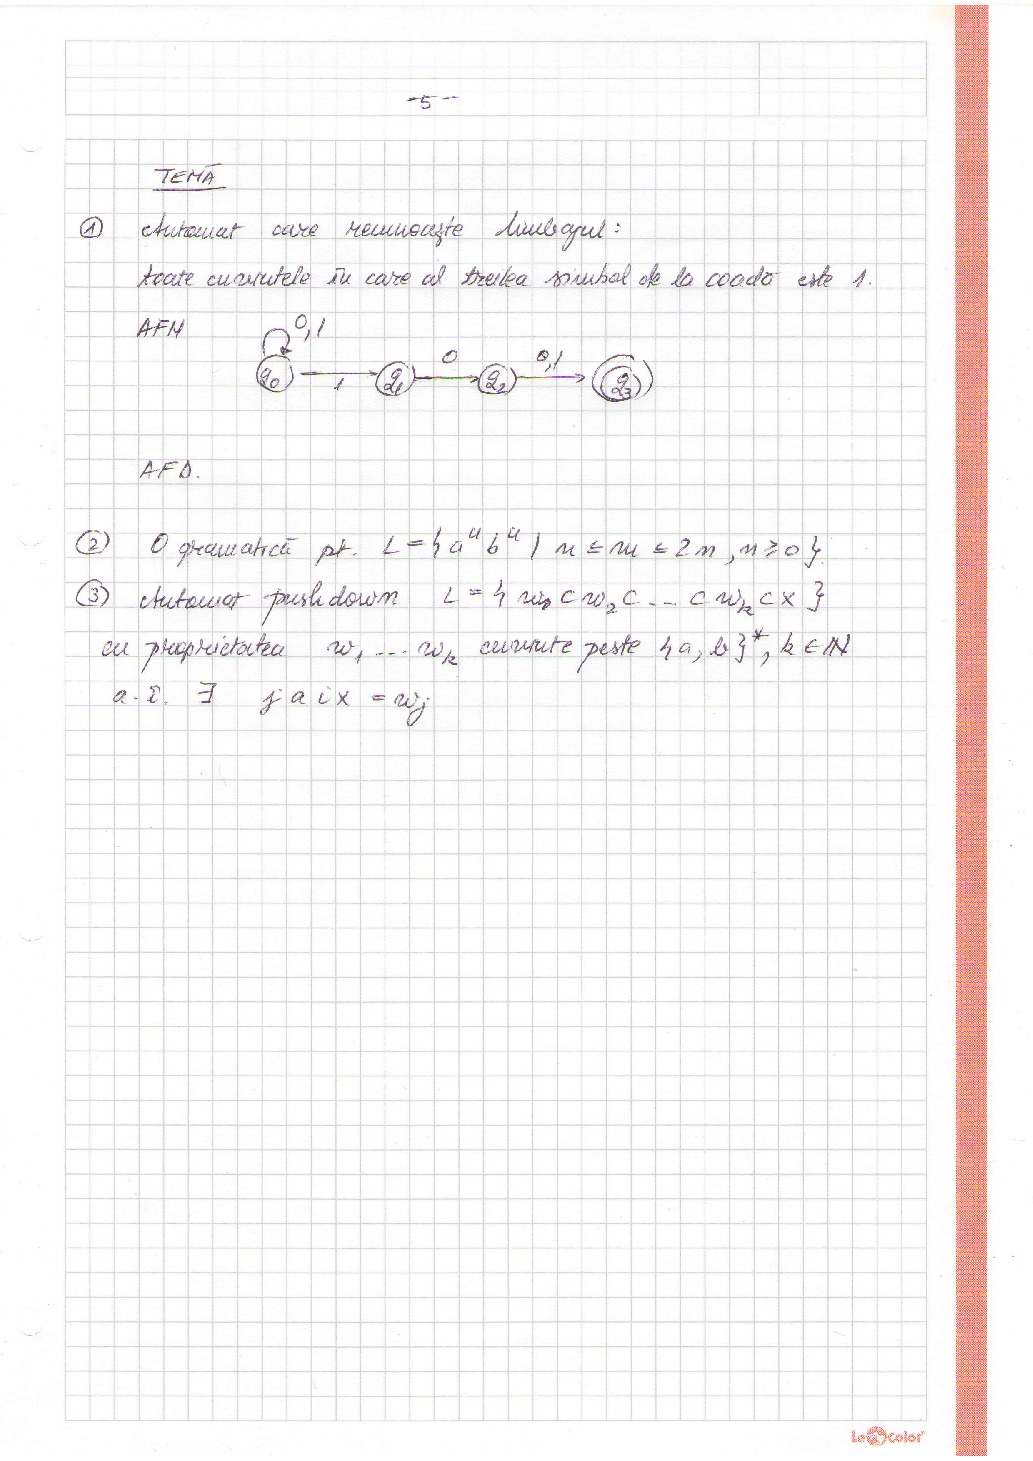 5
TEMĂ
① Automat care recunoaște limbajul:
toate cuvintele în care al treilea simbol de la coadă este 1.
AFN
0,1
0 0,1
q0 1 q1 q2 q3
AFD.
② O gramatică pt. L = { a^n b^n | n ≤ m ≤ 2n, n ≥ 0 }.
③ Automat pushdown L = { w1 c w2 c ... c wk c x }
cu proprietatea w1 ... wk cuvinte peste {a, b}*, k ∈ ℕ
a.î. ∃ j a i x = wj
Le Color